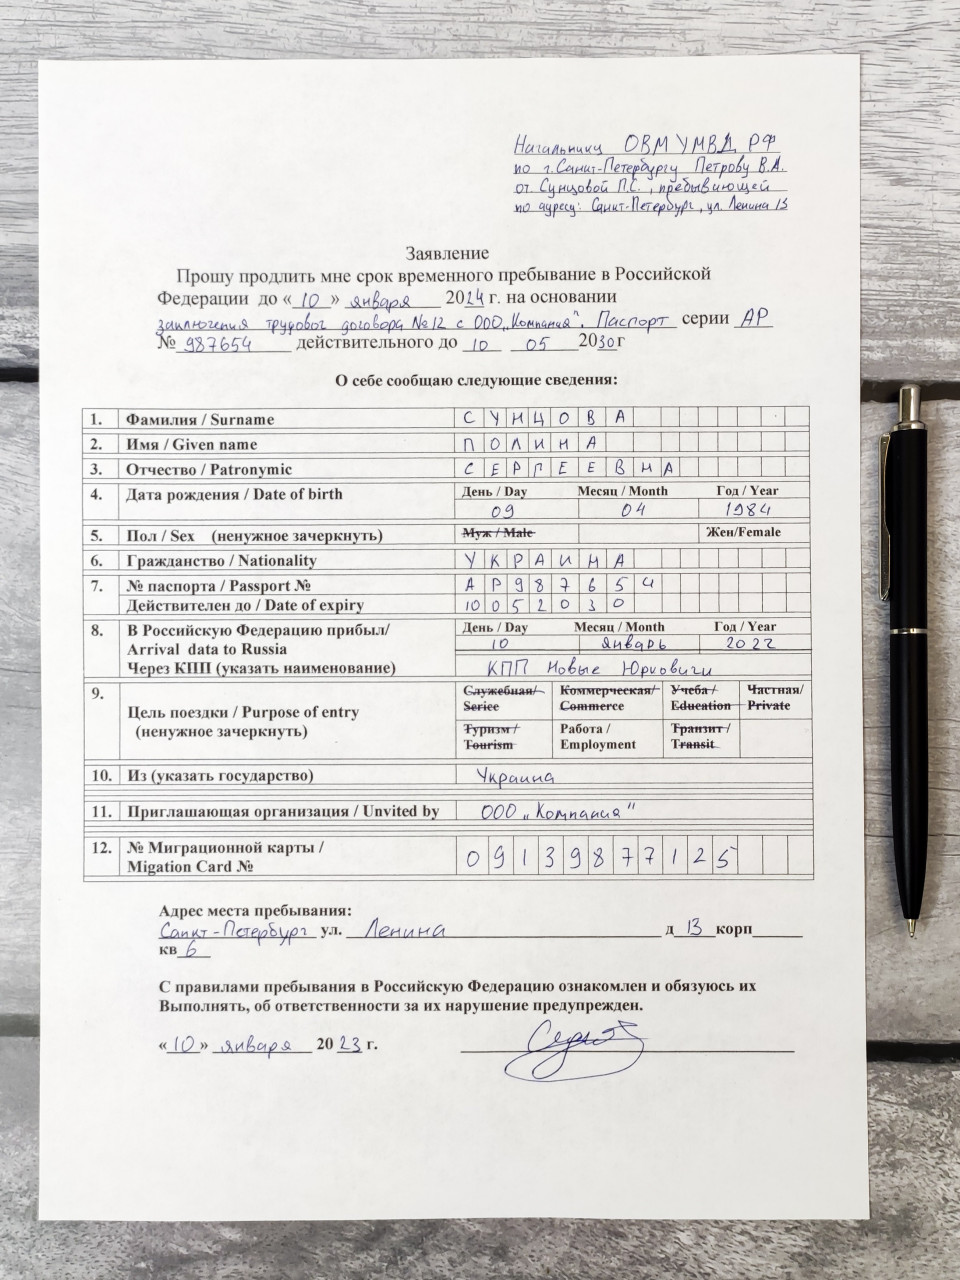 Начальнику ОВМ УМВД РФ
по г.Санкт-Петербургу Петрову В.А.
от Сунцовой П.С., пребывающей
по адресу: Санкт-Петербург, ул. Ленина 13
Заявление
Прошу продлить мне срок временного пребывание в Российской
Федерации до « 10 » января 2024 г. на основании
заключения трудовог договора №12 с ООО „Компания". Паспорт серии АР
№ 987654 действительного до 10 05 2030г
О себе сообщаю следующие сведения:
1. Фамилия / Surname СУНЦОВА
2. Имя / Given name ПОЛИНА
3. Отчество / Patronymic СЕРГЕЕВНА
4. Дата рождения / Date of birth День / Day Месяц / Month Год / Year
09 04 1984
5. Пол / Sex (ненужное зачеркнуть) Муж / Male Жен/Female
6. Гражданство / Nationality УКРАИНА
7. № паспорта / Passport № АР987654
Действителен до / Date of expiry 10052030
8. В Российскую Федерацию прибыл/ День / Day Месяц / Month Год / Year
Arrival data to Russia 10 январь 2022
Через КПП (указать наименование) КПП Новые Юрковичи
9. Служебная/ Коммерческая/ Учеба / Частная/
Serice Commerce Education Private
Цель поездки / Purpose of entry
(ненужное зачеркнуть) Туризм / Работа / Транзит /
Tourism Employment Transit
10. Из (указать государство) Украина
11. Приглашающая организация / Unvited by ООО „Компания"
12. № Миграционной карты / 09139877125
Migation Card №
Адрес места пребывания:
Санкт-Петербург ул. Ленина д 13 корп
кв 6
С правилами пребывания в Российскую Федерацию ознакомлен и обязуюсь их
Выполнять, об ответственности за их нарушение предупрежден.
« 10 » января 20 23 г.